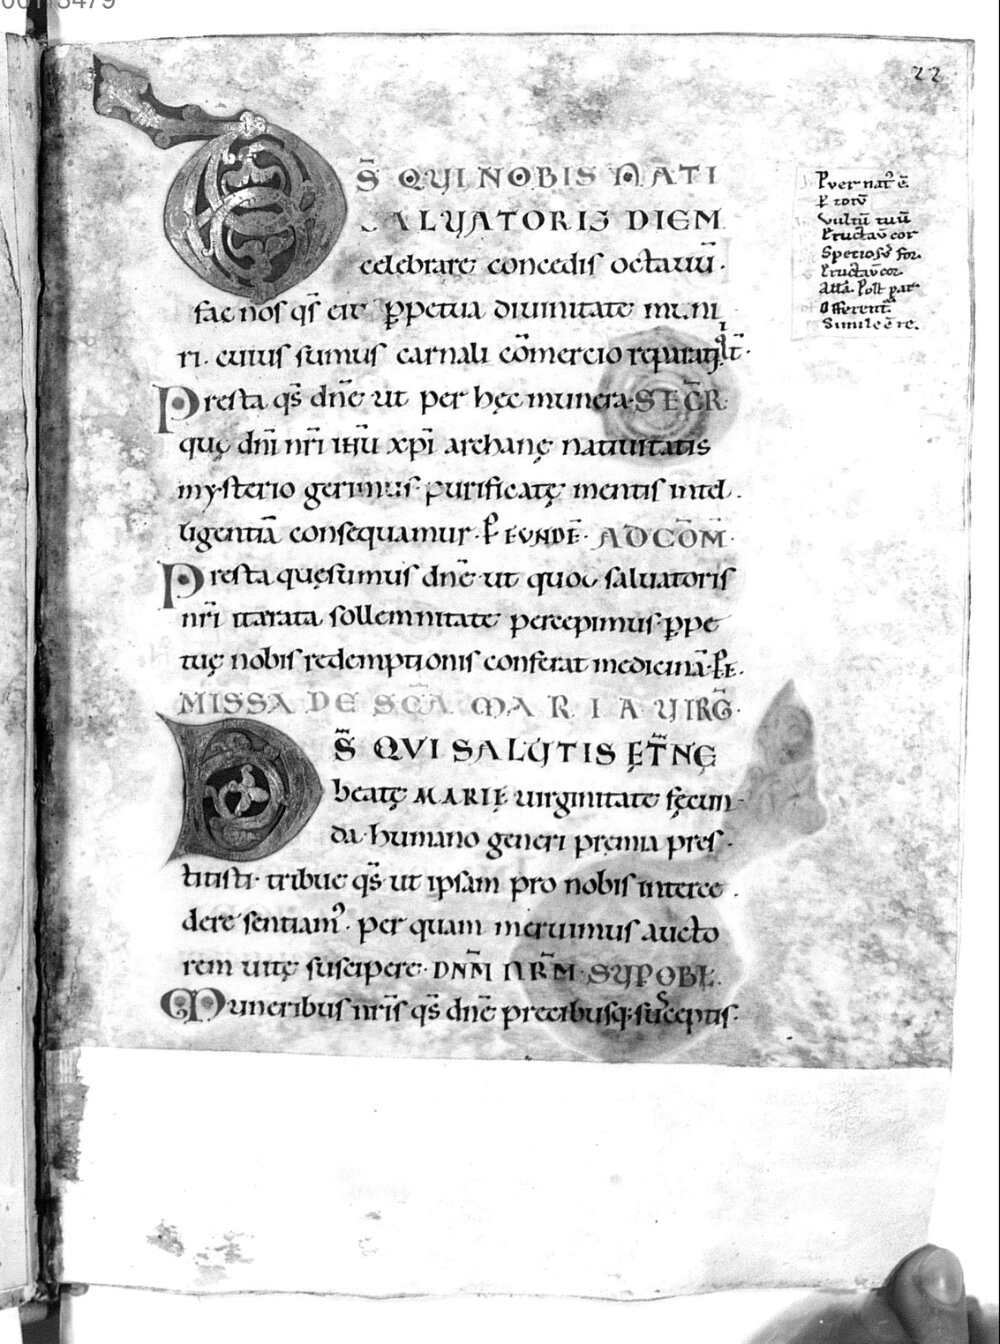 22
DS̄ QUI NOBIS NATI
SALVATORIS DIEM
celebrare concedis octauū·
fac nos qs̄ eiꝰ ꝑpetua diuinitate muni
ri· cuius sumus carnali cōmercio reparati· ꝗlt̄·
Presta qs̄ dn̄e ut per hęc munera· SECR̄·
quę dn̄i nr̄i ihū xp̄i archanę natiuitatis
mysterio gerimus· purificatę mentis intel·
ligentiā consequamur· ꝑ EUNDĒ· AD COM̄·
Presta quęsumus dn̄e· ut quod saluatoris
nr̄i iterata sollemnitate percepimus· ꝑpe
tuę nobis redemptionis conferat medicinā· ꝑ E·
MISSA DE SC̄A MARIA VIRḠ·
DS̄ QVI SALUTIS ĘT̄NĘ
beatę MARIĘ uirginitate fęcun·
da· humano generi premia pres·
titisti· tribue qs̄ ut ipsam pro nobis interce·
dere sentiamꝰ· per quam meruimus aucto
rem uitę suscipere· DNM̄ NR̄M· SUP OBL̄·
Muneribus nr̄is qs̄ dn̄e precibusq; susceptis·
Puer natꝰ ē·
Ꝑ totū
Vultū tuū
Eructau̅ cor
Speciosꝰ for·
Eructau̅ cor·
Attā· Post par·
Offerent̄·
Simile ē re·